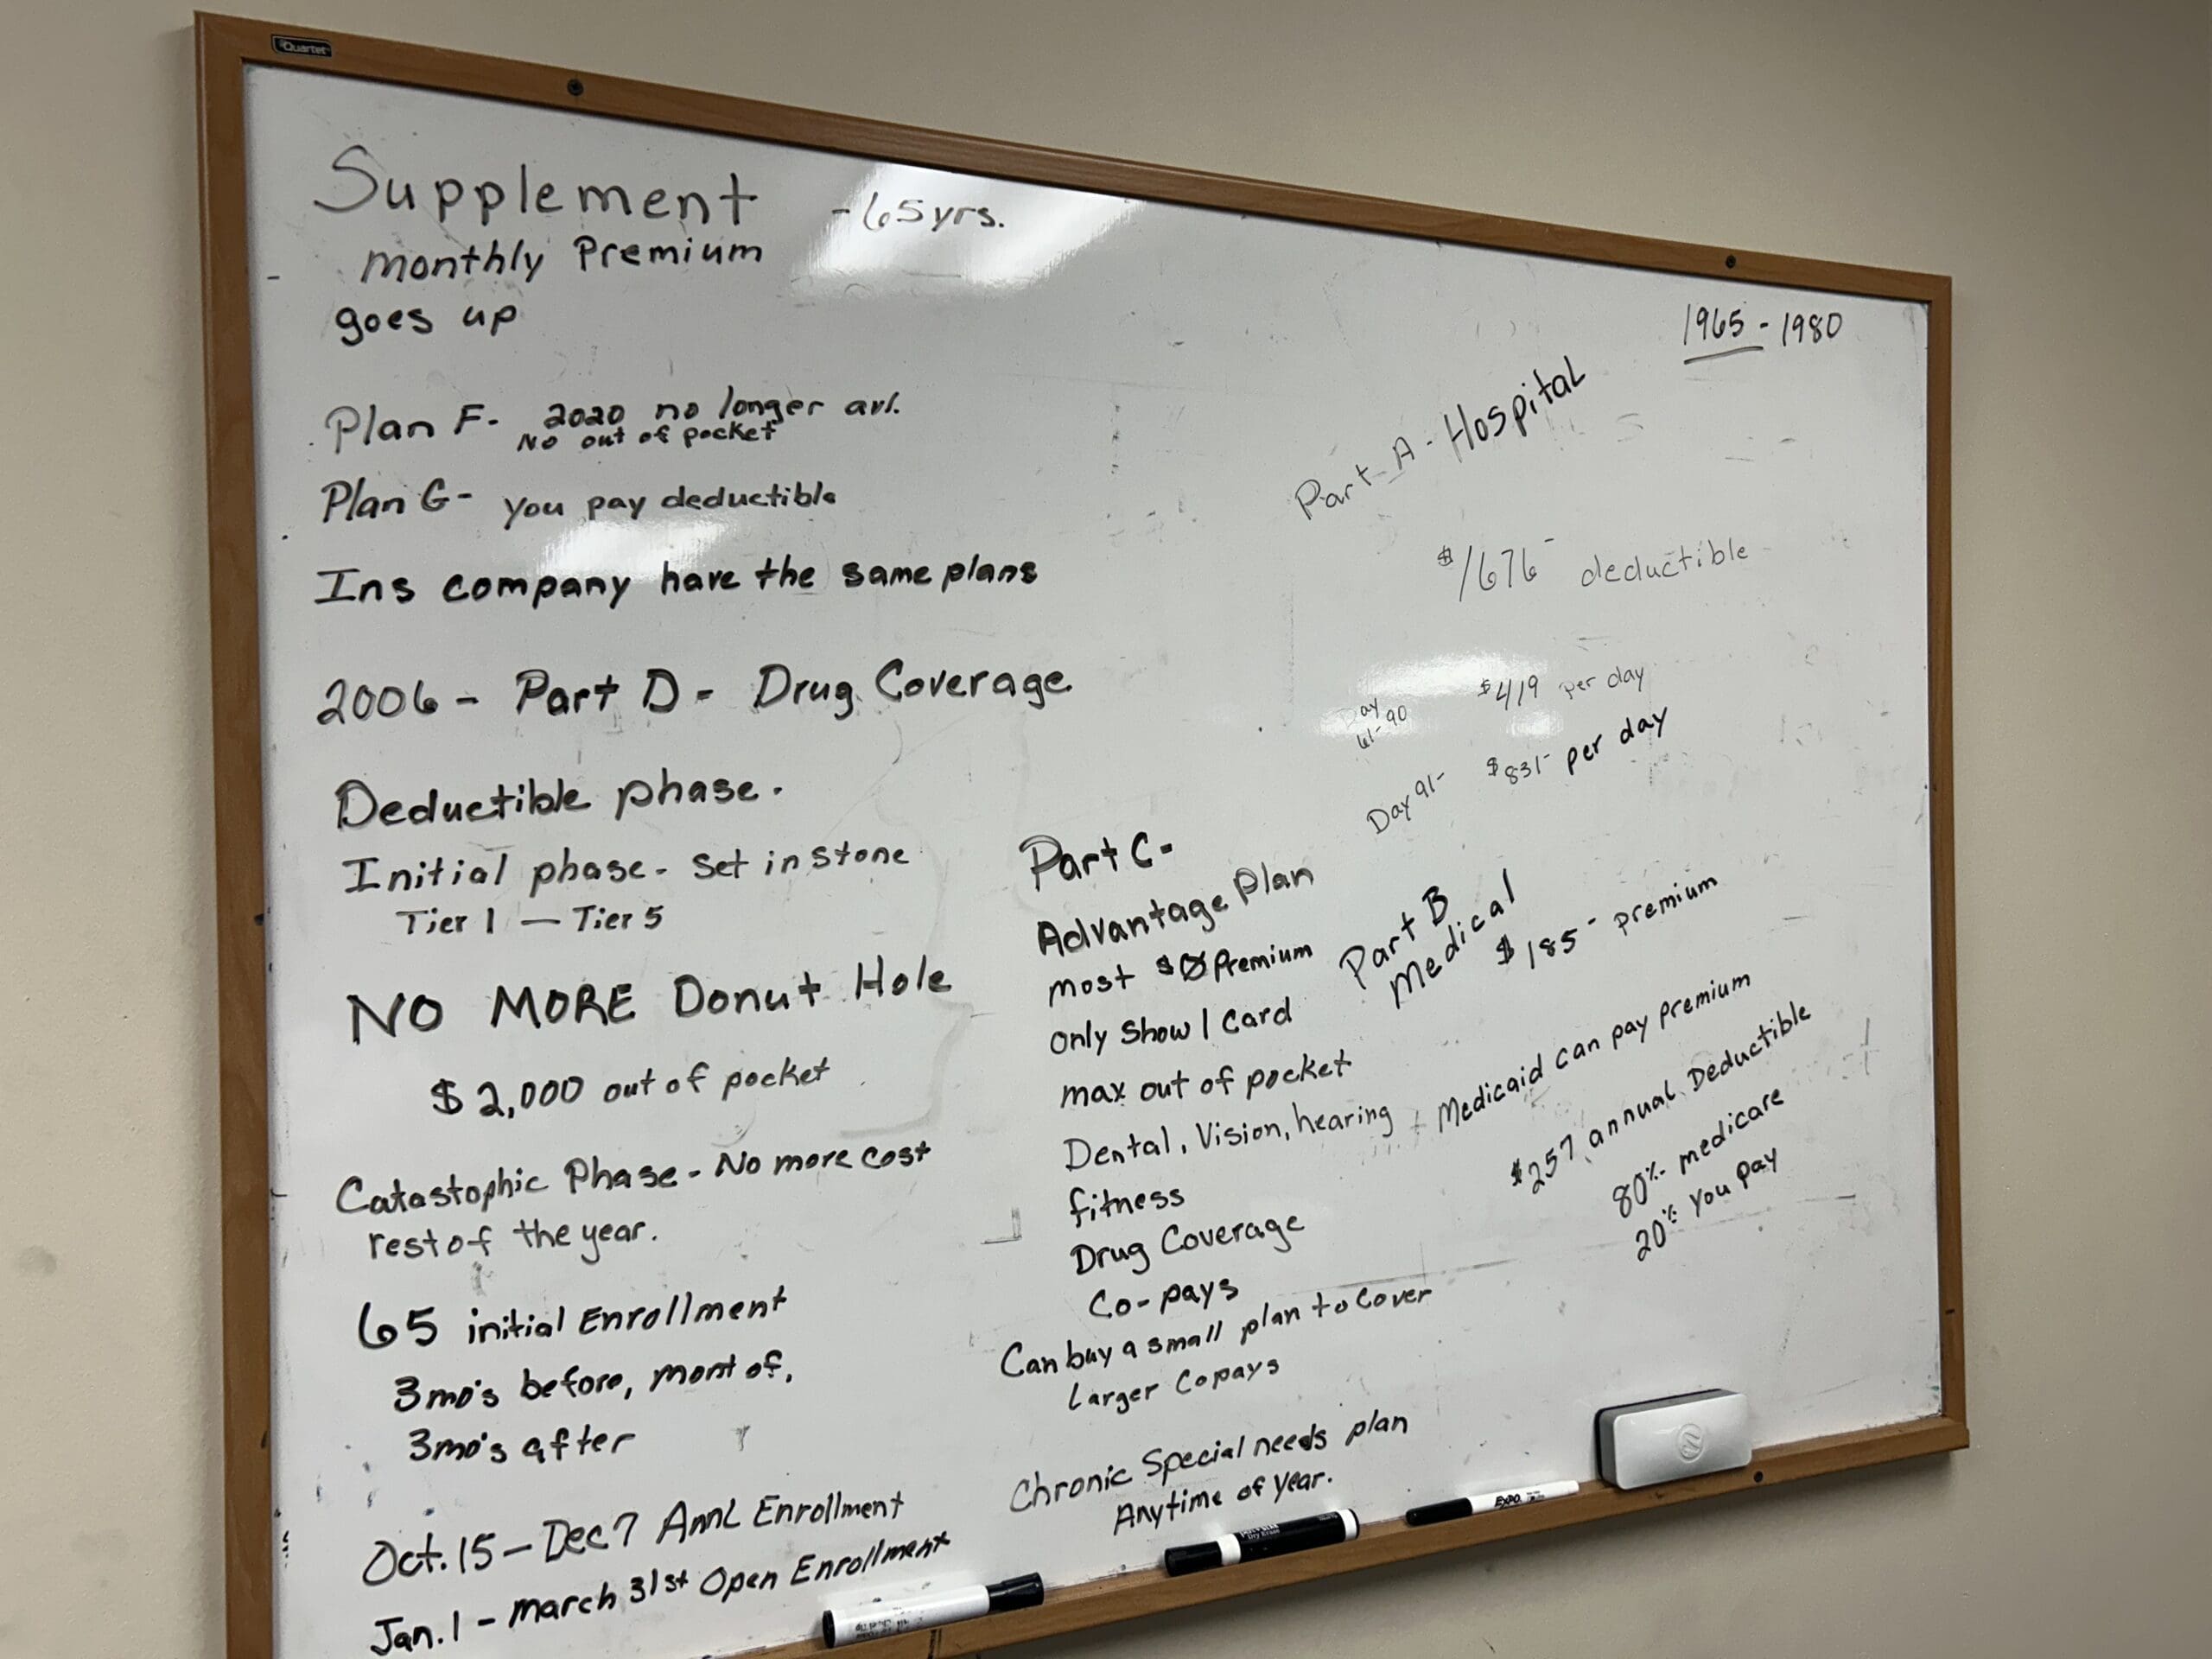 Quartet
Supplement - 65yrs.
monthly Premium
goes up
Plan F- 2020 no longer avl.
No out of pocket
Plan G- you pay deductible
Ins company have the same plans
2006 - Part D - Drug Coverage
Deductible phase.
Initial phase - Set in Stone
Tier 1 — Tier 5
NO MORE Donut Hole
$2,000 out of pocket
Catastophic Phase - No more cost
rest of the year.
65 initial Enrollment
3mo's before, mont of,
3mo's after
Oct. 15 - Dec 7 Annl Enrollment
Jan. 1 - March 31st Open Enrollment
Part C-
Advantage Plan
most $0 Premium
only Show 1 Card
max out of pocket
Dental, Vision, hearing
fitness
Drug Coverage
Co-pays
Can buy a small plan to Cover
Larger Copays
Chronic Special needs plan
Anytime of Year.
1965 - 1980
Part A - Hospital
$1676- deductible
Day 61-90 $419 per day
Day 91- $831- per day
Part B
Medical
$185- premium
Medicaid can pay premium
$257 annual Deductible
80% medicare
20% you pay
EXPO